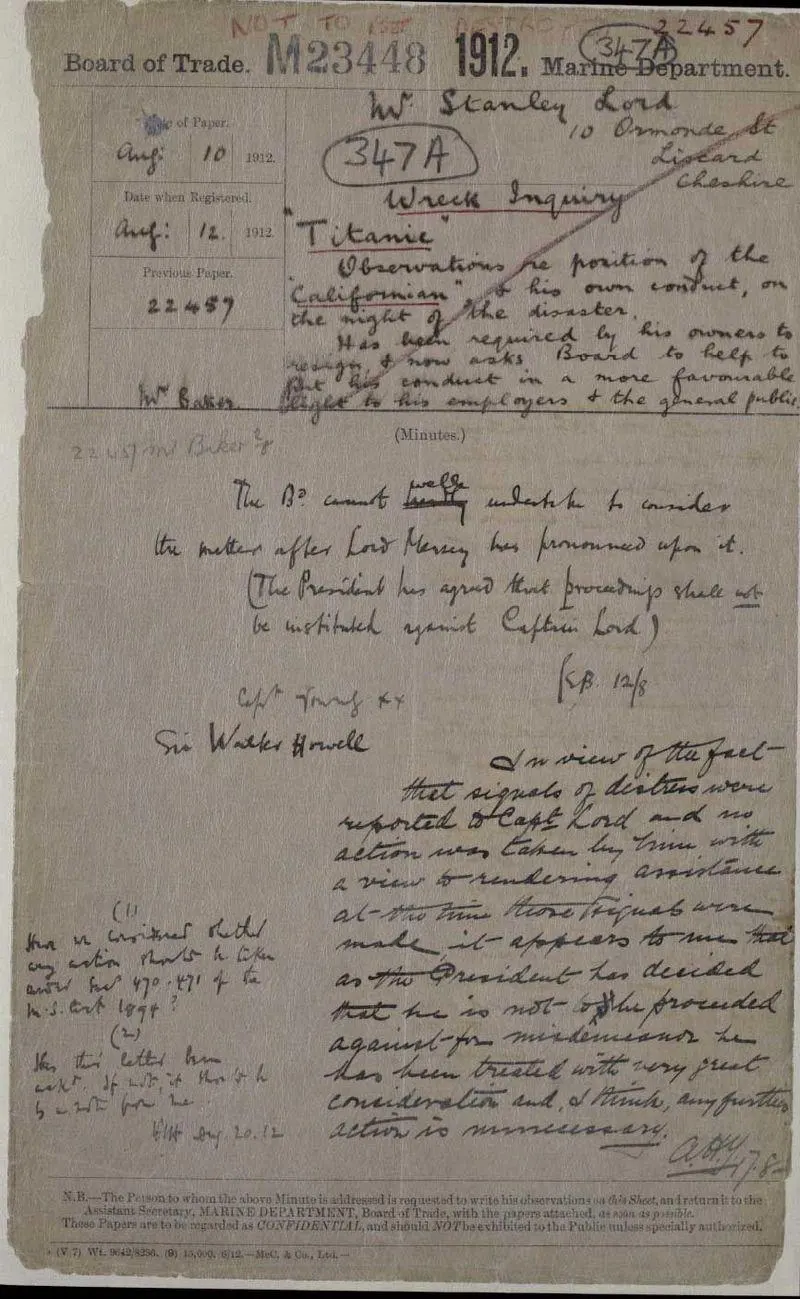 NOT TO BE DESTROYED
22457
Board of Trade. M23448 1912. Marine Department.
347A
Date of Paper.
Aug: 10 1912.
Date when Registered.
Aug: 12. 1912
Previous Paper.
22457
Mr Baker
Mr Stanley Lord
10 Ormonde St
Liscard
Cheshire
347A
Wreck Inquiry
"Titanic"
Observations re position of the
"Californian" & his own conduct, on
the night of the disaster.
Has been required by his owners to
resign, & now asks Board to help to
put his conduct in a more favourable
light to his employers & the general public.
(Minutes.)
22457 Mr Baker
The Bd cannot well undertake to consider
the matter after Lord Mersey has pronounced upon it.
(The President has agreed that proceedings shall not
be instituted against Captain Lord)
12/8
Capt Young xx
Sir Walter Howell
In view of the fact
that signals of distress were
reported to Capt Lord and no
action was taken by him with
a view to rendering assistance
at the time those signals were
made, it appears to me that
as the President has decided
that he is not to be proceeded
against for misdemeanor he
has been treated with very great
consideration and, I think, any further
action is unnecessary.
A.H.Y. 17.8
(1)
Have we considered whether
any action should be taken
under Sec 470-471 of the
M.S. Act 1894?
(2)
Has this letter been
ackd. If not, it should be
by a note from me
WH Aug. 20.12
N.B.—The Person to whom the above Minute is addressed is requested to write his observations on this Sheet, and return it to the
Assistant Secretary, MARINE DEPARTMENT, Board of Trade, with the papers attached, as soon as possible.
These Papers are to be regarded as CONFIDENTIAL, and should NOT be exhibited to the Public unless specially authorized.
(V 7) Wt. 9642/8256. (9) 15,000. 6/12.—McC. & Co., Ltd.—